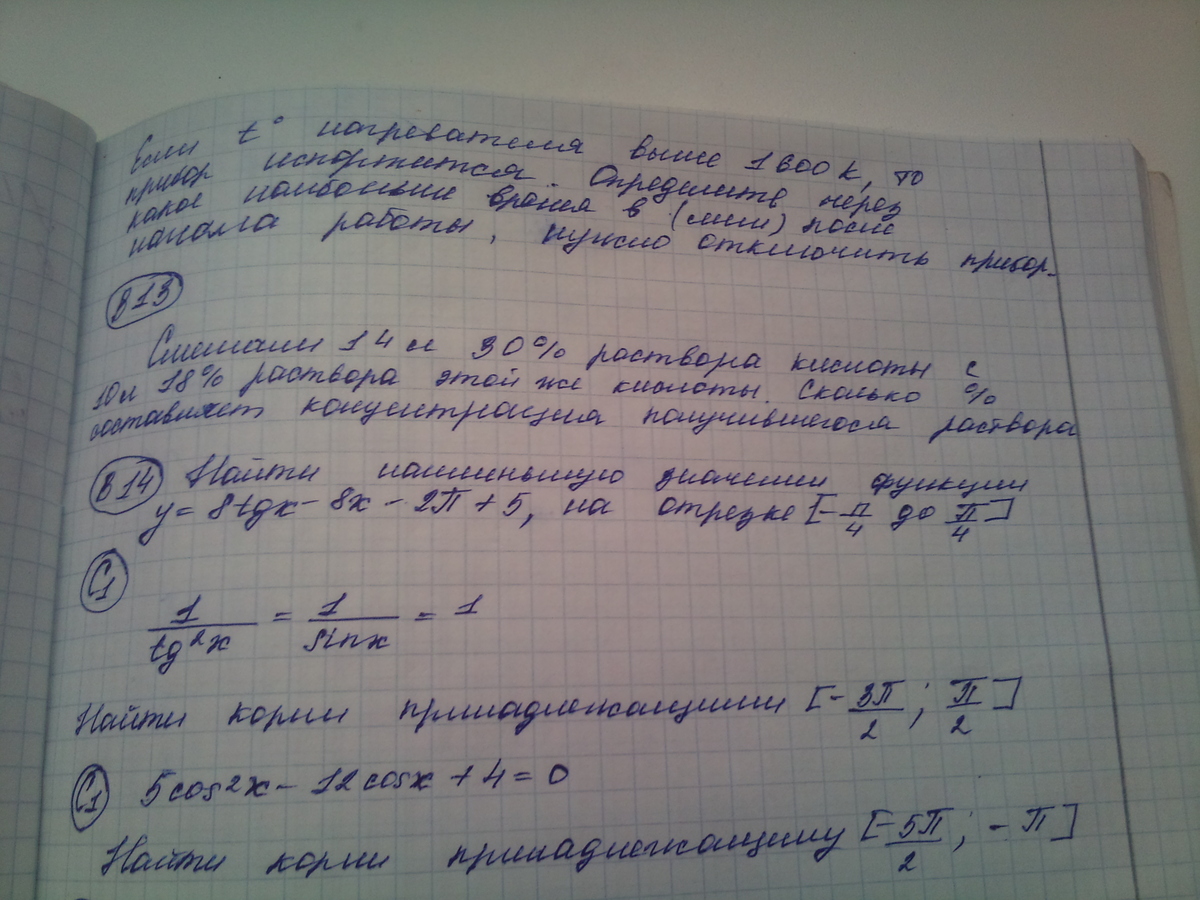 Если t° нагревателя выше 1600 k, то
прибор испортится. Определить через
какое наибольшее время в (мин) после
начала работы, нужно отключить прибор.
В13
Смешали 14 л 30% раствора кислоты с
10л 18% раствора этой же кислоты. Сколько %
составляет концентрация получившегося раствора
В14 Найти наименьшую значении функции
y = 8tgx - 8x - 2π + 5, на отрезке [-π/4 до π/4]
C1
1/tg²x = 1/sinx = 1
Найти корни принадлежащими [-3π/2 ; π/2]
C1 5cos2x - 12cosx + 4 = 0
Найти корни принадлежащиму [-5π/2 ; -π]